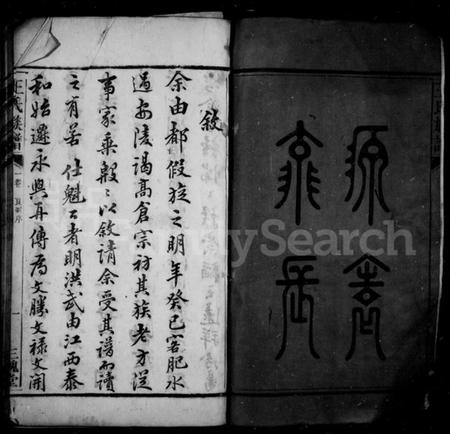 源遠
流長
敘
余由都假旋之明年癸巳客肥水
過安陵謁高倉宗祊其族老方從
事家乘殷殷以敘請余受其譜而讀
之有若仕魁公者明洪武由江西泰
和始遷永興再傳為文勝文祿文開
王氏族譜
卷
序
一
三槐堂
FamilySearch